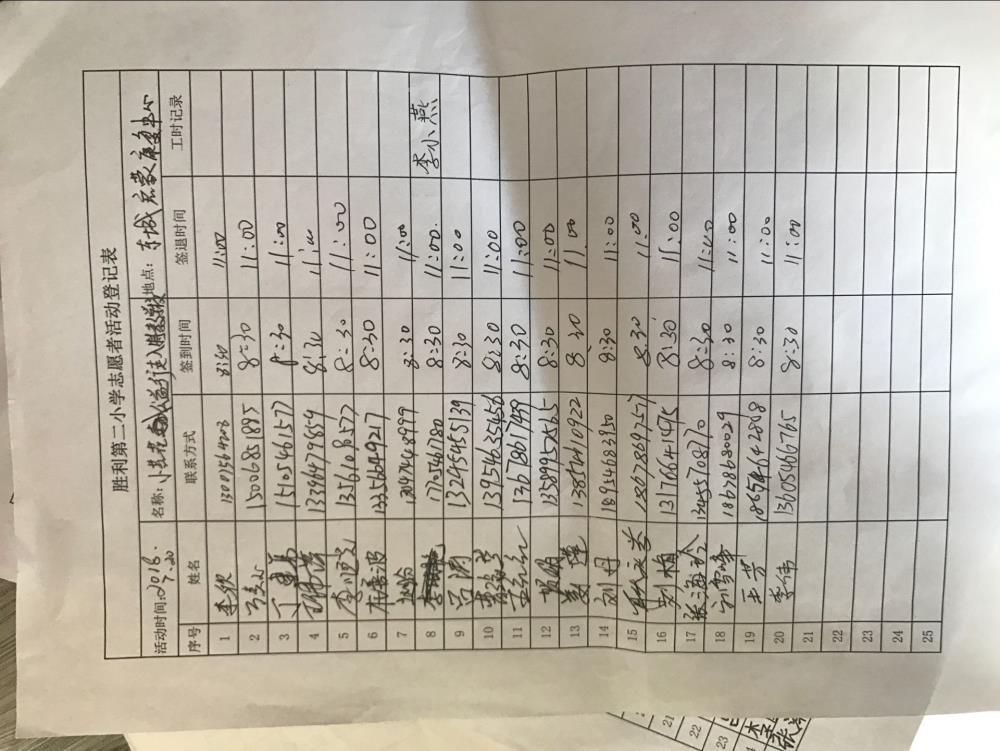 胜利第二小学志愿者活动登记表
活动时间:2018.7.20 名称: 地点: 东城启蒙康复中心
序号 姓名 联系方式 签到时间 签退时间 工时记录
1 李欣 13001564203 8:30 11:00
2 15006851895 8:30 11:00
3 15105461577 8:30 11:00
4 13396479859 8:30 11:00
5 13561098577 8:30 11:00
6 13356649217 8:30 11:00
7 13047448999 8:30 11:00
8 17705446780 8:30 11:00 李小燕
9 吕润 13245455139 8:30 11:00
10 13954635456 8:30 11:00
11 13678617459 8:30 11:00
12 13589952565 8:30 11:00
13 姜瑾 13854610922 8:30 11:00
14 刘丹 18954683950 8:30 11:00
15 18678989757 8:30 11:00
16 彭梅 13176641975 8:30 11:00
17 张海玲 13455708770 8:30 11:00
18 刘雪峰 18678680029 8:30 11:00
19 王芳 18654642808 8:30 11:00
20 李伟 13605466765 8:30 11:00
21
22
23
24
25
21
22
23